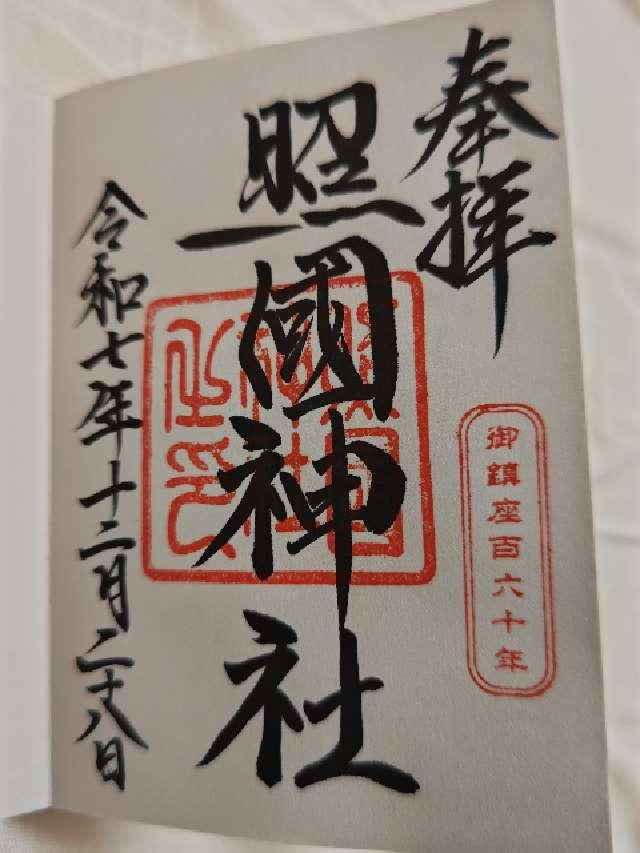 奉拝
御鎮座百六十年
照國神社
令和七年十二月二十八日